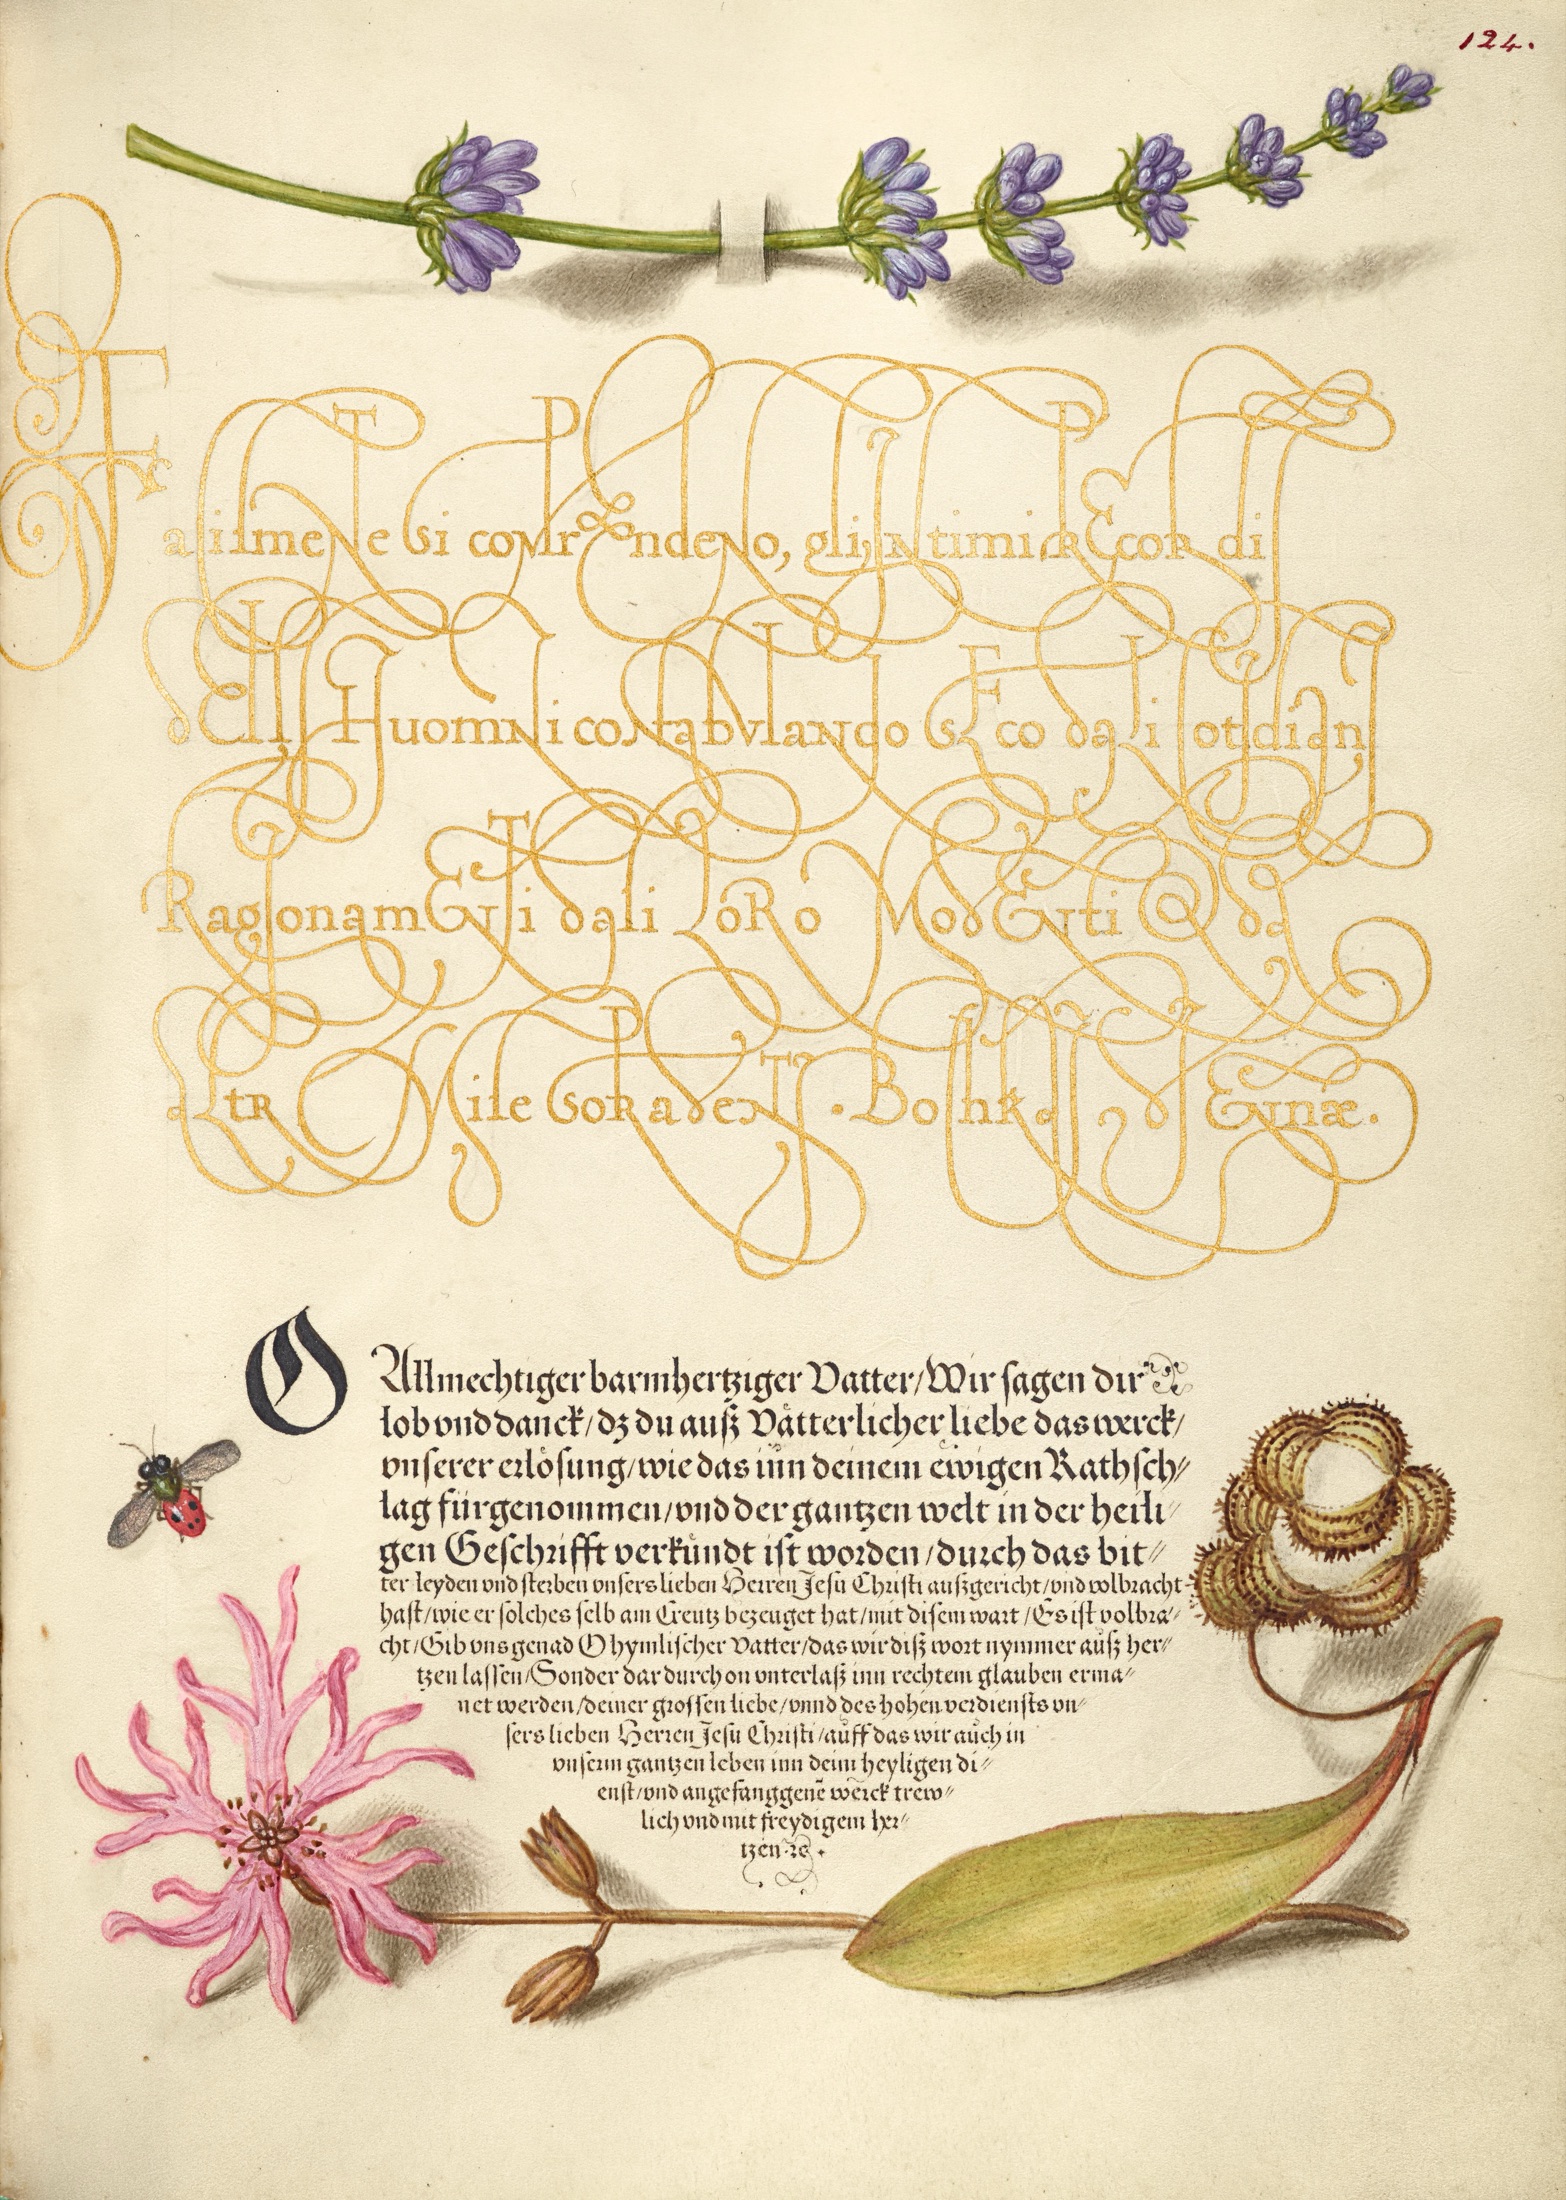 124.
Facilmente si comprendeno, gli intimi Recor di
dElli Huomini confabvlando sEco dali qotidiani
RagionamEnti dali LoRo ModEnti & da
altR Mile soR adenti. Bo
O Allmechtiger barmhertziger Vatter/Wir sagen dir
lob vnd danck/dz du auß Vätterlicher liebe das werck/
vnserer erlösung/wie das inn deinem ewigen Rathsch⸗
lag fürgenommen/vnd der gantzen welt in der heili⸗
gen Geschrifft verkündt ist worden/durch das bit⸗
ter leyden vnd sterben vnsers lieben Herren Jesu Christi außgericht/vnd volbracht
hast/wie er solches selb am Creutz bezeuget hat/mit disem wart/Es ist volbra⸗
cht/Gib vns genad O hymlischer Vatter/das wir diß wort nymmer auß her⸗
tzen lassen/Sonder dar durch on vnterlaß inn rechtem glauben erma⸗
net werden/deiner grossen liebe/vnnd des hohen verdiensts vn⸗
sers lieben Herren Jesu Christi/auff das wir auch in
vnserm gantzen leben inn deim heyligen di⸗
enst/vnd angefanggenē werck trew⸗
lich vnd mit freydigem her⸗
tzen ꝛc.